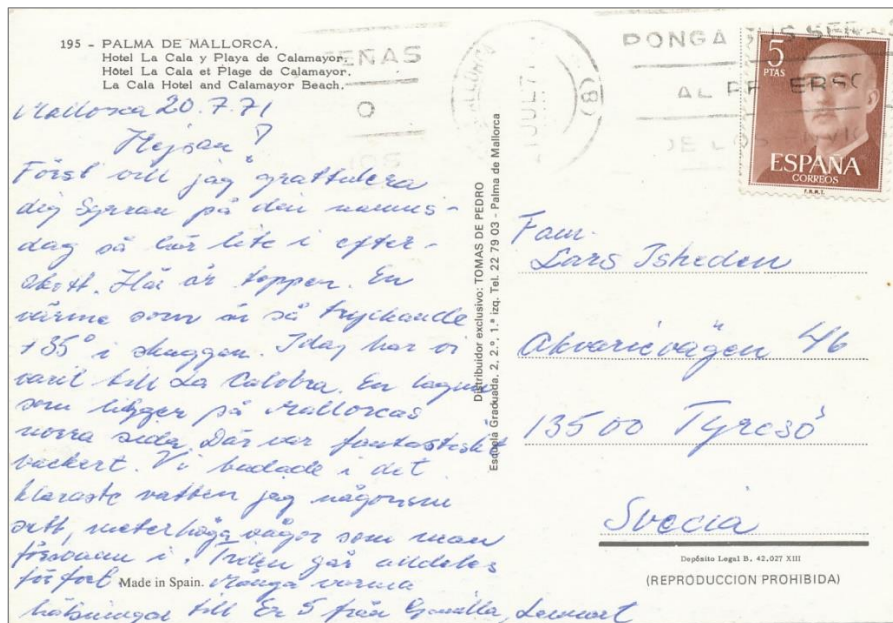 195 - PALMA DE MALLORCA.
Hotel La Cala y Playa de Calamayor.
Hôtel La Cala et Plage de Calamayor.
La Cala Hotel and Calamayor Beach.
Mallorca 20.7.71
Hejsan!
Först vill jag grattulera
dig Syrran på din namns-
dag så här lite i efter-
skott. Här är toppen. En
värme som är så tryckande
+35° i skuggan. Idag har vi
varit till La Calobra. En lagun
som ligger på Mallorcas
norra sida. Där var fantastiskt
vackert. Vi badade i det
klaraste vatten jag någonsin
sett, meterhöga vågor som man
försvann i. Tiden går alldeles
för fort. Många varma
hälsningar till Er 5 från Gunilla, Lennart
Made in Spain.
Distribuidor exclusivo: TOMAS DE PEDRO
Escuela Graduada, 2, 2.º, 1.ª izq. Tel. 22 79 03 - Palma de Mallorca
SEÑAS
O
JUL 71
(8)
PONGA SUS SEÑAS
AL
DE LOS
5
PTAS
ESPAÑA
CORREOS
F.N.M.T.
Fam.
Lars Isheden
Akvarievägen 46
13500 Tyresö
Svecia
Depósito Legal B. 42.027 XIII
(REPRODUCCION PROHIBIDA)